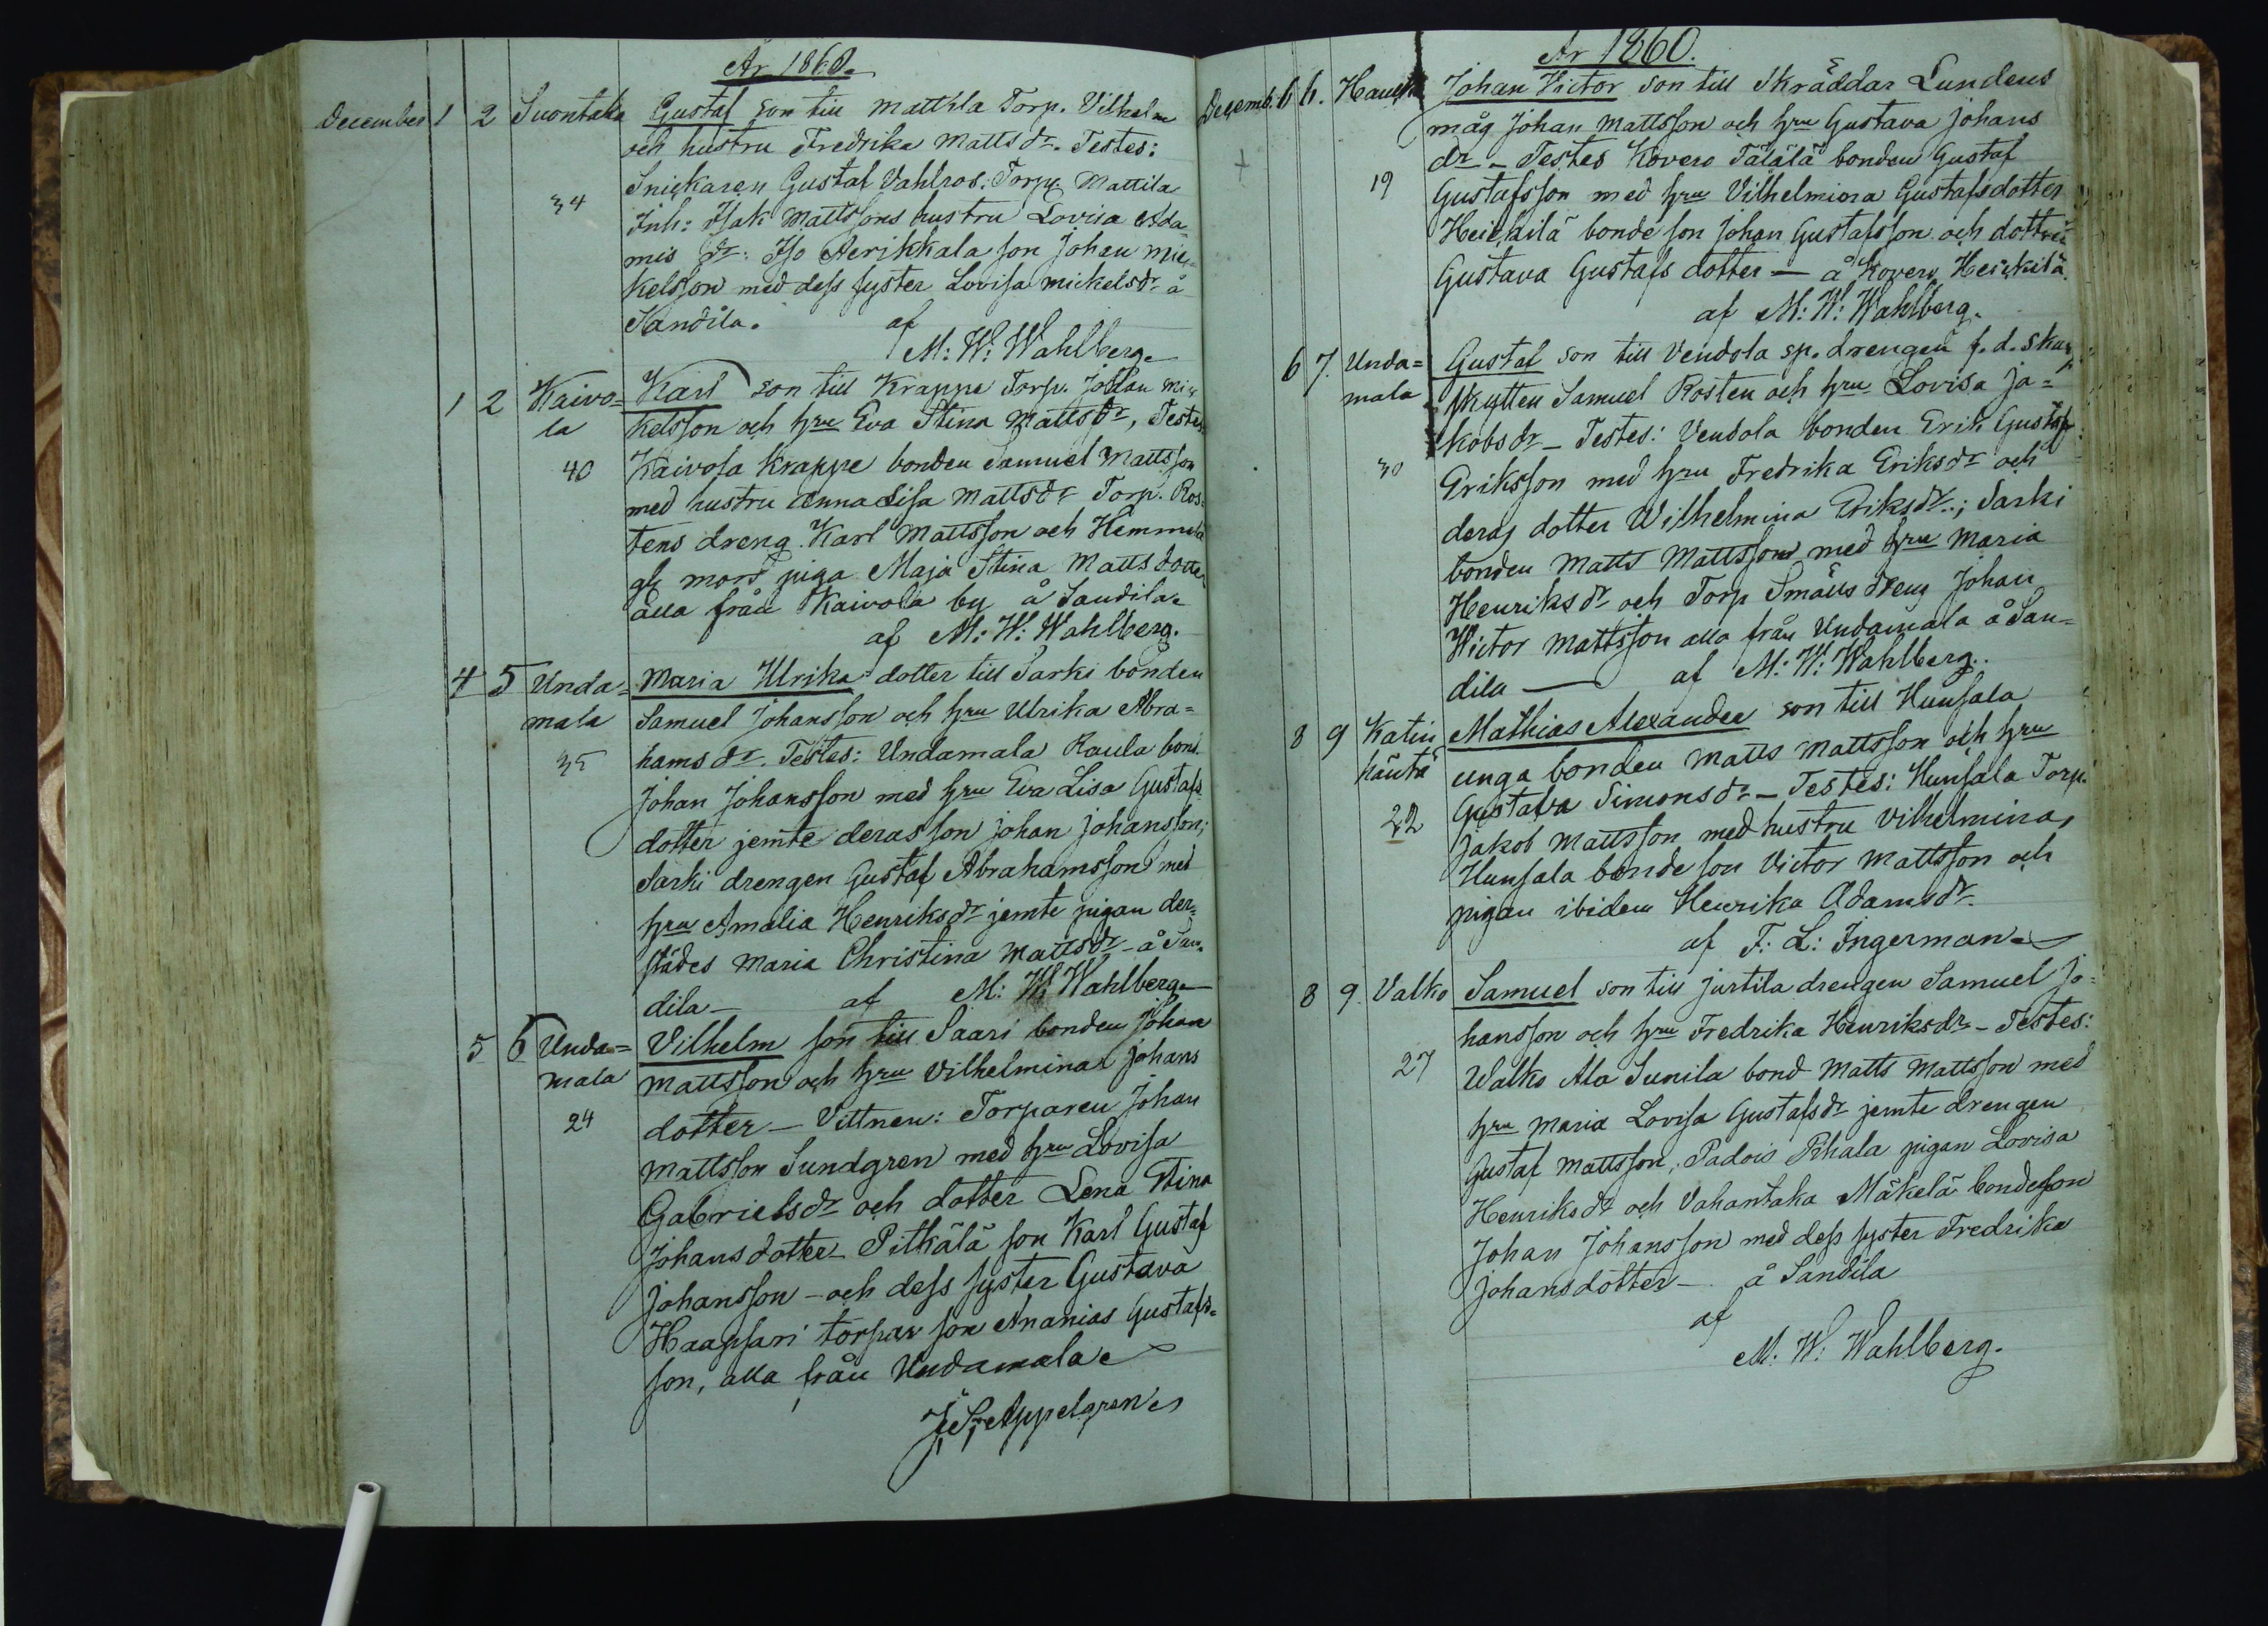 År 1860.
December 1 2 Suontaka Gustaf son till Mattila Torp. Vilhelm
och hustru Fredrika Matts dr. Testes:
Snickaren Gustaf Vahlros: Torp. Mattila
34
Inh: Isak Mattssons hustru Lovisa Ada=
mis dr: Iso Aerikkala son Johan Mic=
kelsson med dess syster Lovisa Mickelsdr å
Sandila. af
M: W: Wahlberg.
1 2 Kaivo= Karl son till Krappe Torp. Johan Mic
la kelsson och hru Eva Stina Matts dr, Testes
40 Kaivola Krappe bonden Samuel Mattsson
med hustru Anna Lisa Matts dr Torp. Ros=
tens dreng Karl Mattsson och Hemmilä
piga Maja Stina Matts dotter
alla från Kaivola by å Sandila.
af M: W: Wahlberg.
4 5 Unda= Maria Ulrika dotter till Sarki bonden
mala Samuel Johansson och hru Ulrika Abra=
35 hams dr. Testes: Undamala Raula bond
Johan Johansson med hru Eva Lisa Gustafs
dotter jemte deras son Johan Johansson;
Sarki drengen Gustaf Abrahamsson med
hru Amalia Henriks dr jemte pigan der=
städes Maria Christina Matts dr - å San=
dila — af M: W: Wahlberg.
5 6 Unda= Vilhelm son till Saari bonden Johan
mala Mattsson och hru Vilhelmina Johans
24 dotter — Vittnen: Torparen Johan
Mattsson Sundgren med hru Lovisa
Gabriels dr och dotter Lena Stina
Johans dotter - Pitkälä son Karl Gustaf
Johansson - och dess syster Gustava
Haapsari torpar son Ananias Gustafs=
son, alla från Undamala
Appelgren
År 1860.
Decemb. 6 6. Johan Victor son till Skräddar Lundens
måg Johan Mattsson och hru Gustava Johans
dr — Testes Kovero Tälälä bonden Gustaf
19 Gustafsson med hru Vilhelmiona Gustafsdotter
Heickilä bonde son Johan Gustafsson och dottren
Gustava Gustafs dotter — å Kovero Heickilä.
af M: W: Wahlberg.
6 7. Unda= Gustaf son till Vendola sp. drengen f. d. skar
mala skytten Samuel Rosten och hru Lovisa Ja=
kobs dr — Testes: Vendola bonden Erik Gustaf
30 Eriksson med hru Fredrika Eriks dr och
deras dotter Wilhelmina Eriks dr.; Sarki
bonden Matts Mattsson med hru Maria
Henriks dr och Torp Smålls dreng Johan
Wictor Mattsson alla från Undamala å San=
dila — af M: W: Wahlberg.
8 9 Katin Mathias Alexander son till Hunsala
häntä unga bonden Matts Mattsson och hru
22 Gustava Simons dr — Testes: Hunsala Torp.
Jakob Mattsson med hustru Vilhelmina,
Hunsala bonde son Victor Mattsson och
pigan ibidem Henrika Adams dr.
af F: L: Ingerman.
8 9. Valko Samuel son till Jurtila drengen Samuel Jo=
hansson och hru Fredrika Henriksdr. — Testes:
27 Walko Ala Sunila bond Matts Mattsson med
hru Maria Lovisa Gustafs dr jemte drengen
Gustaf Mattsson, Padois Pihala pigan Lovisa
Henriks dr och Vahantaka Mäkelä bondeson
Johan Johansson med dess syster Fredrika
Johansdotter — å Sandila
af
M: W: Wahlberg.